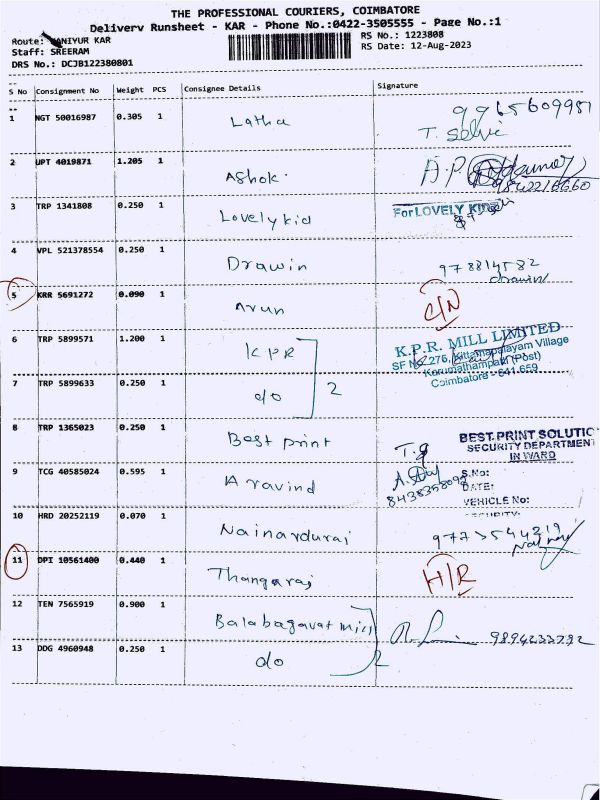 THE PROFESSIONAL COURIERS, COIMBATORE
Delivery Runsheet - KAR - Phone No.:0422-3505555 - Page No.:1
Route: VANIYUR KAR
Staff: SREERAM
DRS No.: DCJB122380801
RS No.: 1223808
RS Date: 12-Aug-2023
S No Consignment No Weight PCS Consignee Details Signature
1 NGT 50016987 0.305 1 Latha T. Selvi
2 UPT 4019871 1.205 1 Ashok. A.P.
3 TRP 1341808 0.250 1 Lovely kid For LOVELY
4 VPL 521378554 0.250 1 Drawin
5 KRR 5691272 0.090 1 Arun C/N
6 TRP 5899571 1.200 1 KPR
7 TRP 5899633 0.250 1 do 2
K.P.R. MILL LIMITED
SF No.276, Kittampalayam Village
Karumathampatti (Post)
Coimbatore - 641 659
8 TRP 1365023 0.250 1 Best print
BEST PRINT SOLUTIO
SECURITY DEPARTMENT
IN WARD
S.No:
DATE:
VEHICLE No:
9 TCG 40585024 0.595 1 Aravind
10 HRD 20252119 0.070 1 Nainardurai
11 DPI 10561400 0.440 1 Thangaraj H/R
12 TEN 7565919 0.900 1 Balabagavat mill
13 DDG 4960948 0.250 1 do 2